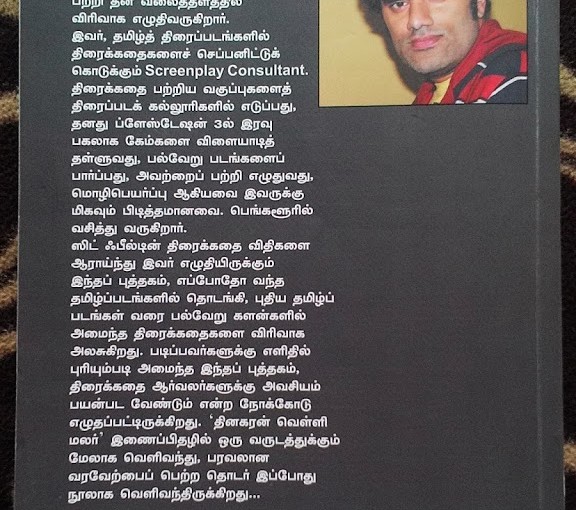 பற்றி தன் வலைத்தளத்தில்
விரிவாக எழுதிவருகிறார்.
இவர், தமிழ்த் திரைப்படங்களில்
திரைக்கதைகளைச் செப்பனிட்டுக்
கொடுக்கும் Screenplay Consultant.
திரைக்கதை பற்றிய வகுப்புகளைத்
திரைப்படக் கல்லூரிகளில் எடுப்பது,
தனது ப்ளேஸ்டேஷன் 3ல் இரவு
பகலாக கேம்களை விளையாடித்
தள்ளுவது, பல்வேறு படங்களைப்
பார்ப்பது, அவற்றைப் பற்றி எழுதுவது,
மொழிபெயர்ப்பு ஆகியவை இவருக்கு
மிகவும் பிடித்தமானவை. பெங்களூரில்
வசித்து வருகிறார்.
ஸிட் ஃபீல்டின் திரைக்கதை விதிகளை
ஆராய்ந்து இவர் எழுதியிருக்கும்
இந்தப் புத்தகம், எப்போதோ வந்த
தமிழ்ப்படங்களில் தொடங்கி, புதிய தமிழ்ப்
படங்கள் வரை பல்வேறு களன்களில்
அமைந்த திரைக்கதைகளை விரிவாக
அலசுகிறது. படிப்பவர்களுக்கு எளிதில்
புரியும்படி அமைந்த இந்தப் புத்தகம்,
திரைக்கதை ஆர்வலர்களுக்கு அவசியம்
பயன்பட வேண்டும் என்ற நோக்கோடு
எழுதப்பட்டிருக்கிறது. ‘தினகரன் வெள்ளி
மலர்’ இணைப்பிதழில் ஒரு வருடத்துக்கும்
மேலாக வெளிவந்து, பரவலான
வரவேற்பைப் பெற்ற தொடர் இப்போது
நூலாக வெளிவந்திருக்கிறது...